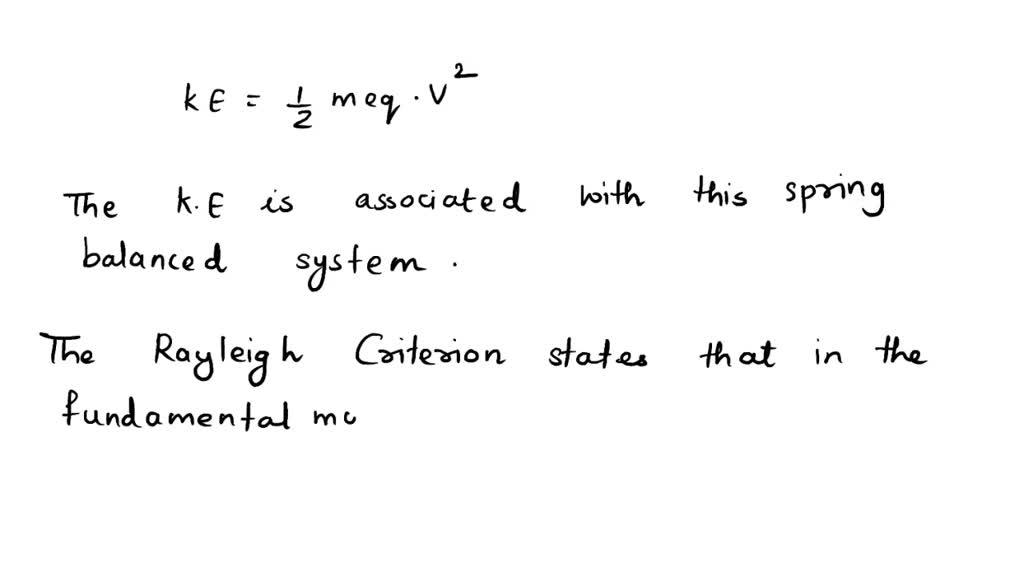 KE = 1/2 meq · V²
The K.E is associated with this spring
balanced system .
The Rayleigh Criterion states that in the
fundamental mo